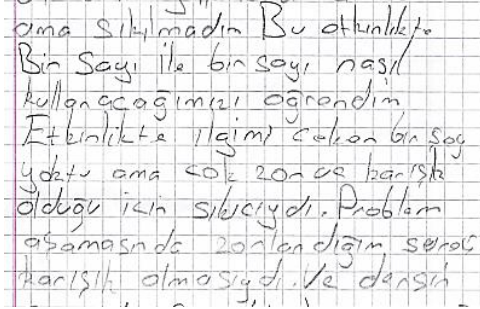 ama sıkılmadım Bu etkinlikte
Bir Sayı ile bir sayı nasıl
kullanacağımızı öğrendim
Etkinlikte ilgimi çeken bir şey
yoktu ama çok zor ve karışık
olduğu için sıkıcıydı. Problem
aşamasında zorlandığım
karışık olmasıydı. Ve dersin